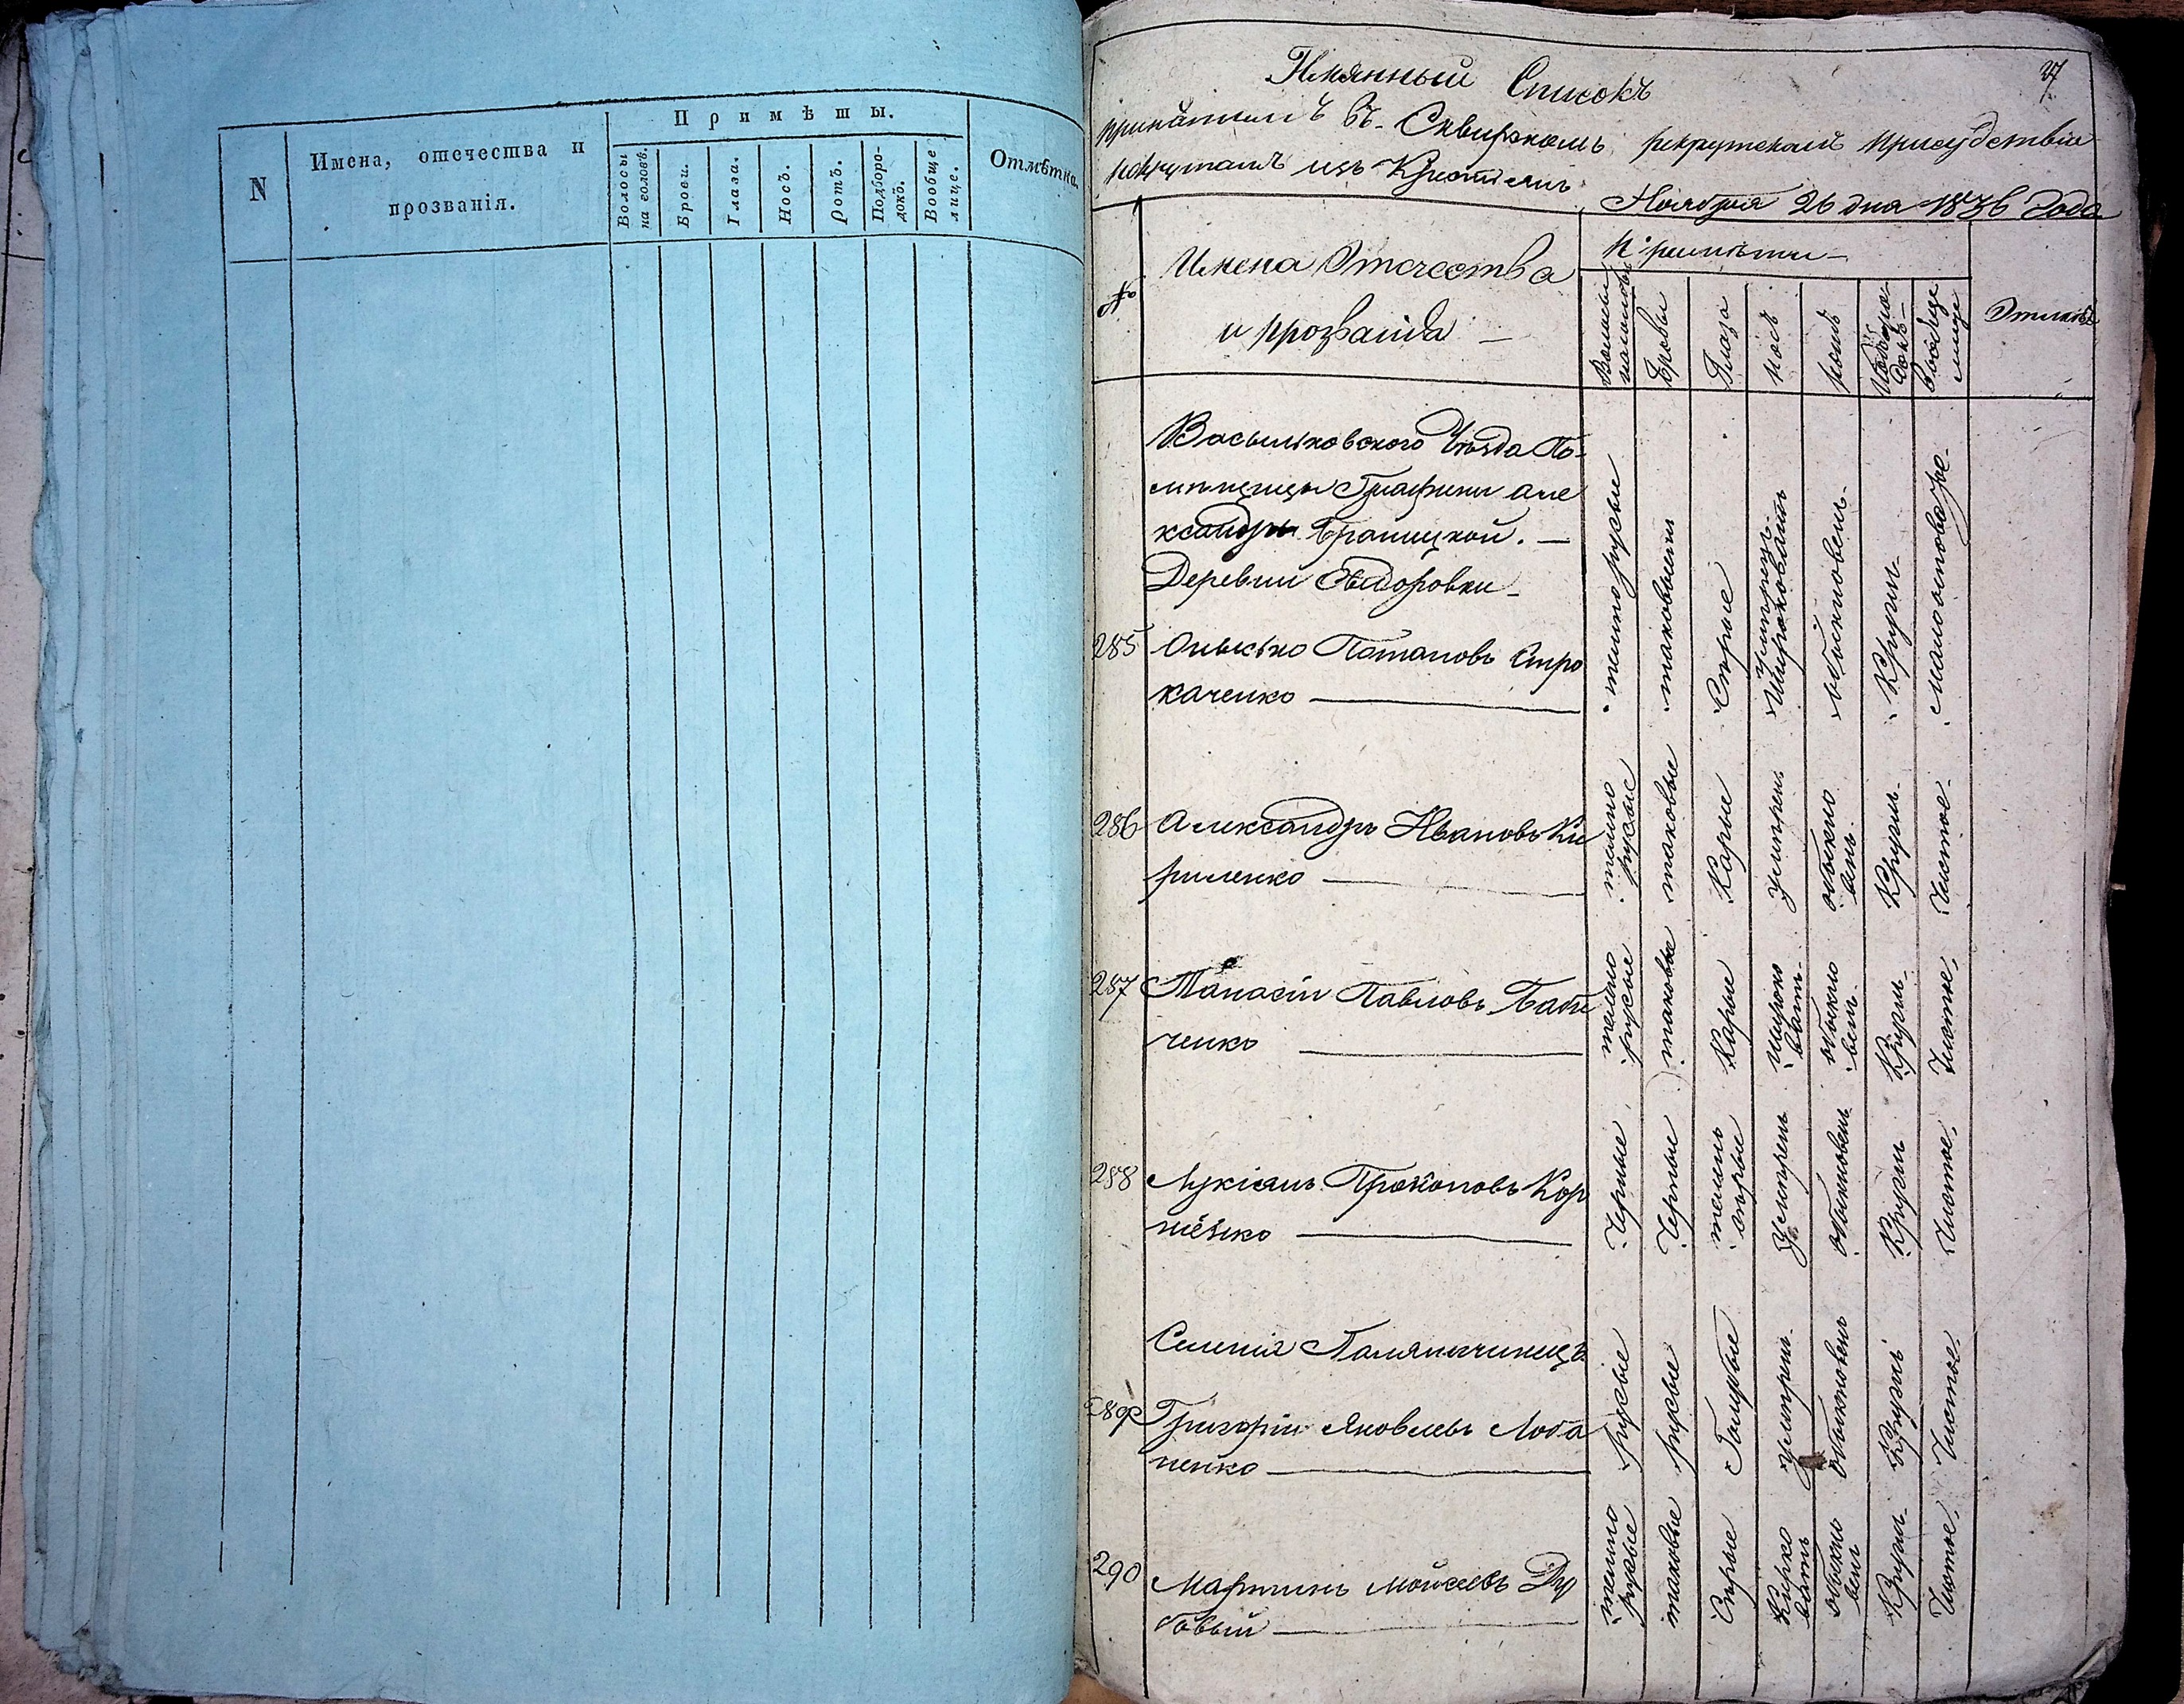 N
Имена, отечества и
прозванія.
Примѣты.
Волосы
на головѣ.
Брови.
Глаза.
Носъ.
Ротъ.
Подборо-
докъ.
Вообще
лице.
Отмѣтка.
27
Имянный Списокъ
принятымъ въ Сквирскомъ рекрутскомъ присудствіи
рекрутамъ изъ Крестьянъ
Ноября 26 дня 1836 Года
№
Имена Отечества
и прозванія —
Примѣты —
Волосы
на головѣ
Брови
Глаза
носъ
ротъ
Подборо-
докъ
вообще
лице
Отмѣтк
Васильковского Уѣзда По-
мѣщицы Графини але
ксандры Браницкой. —
Деревни Ѳедоровки —
285 Олексѣо Потаповъ Стро
каченко
темнорусые
таковыежъ
Сѣрые
умѣрен.
Широковатъ
обикновен.
Кругл.
малоостоватое.
286 Александръ Ивановъ Ки
риленко
темно
русые
таковые
Карые
умѣрен
обыкно
вен.
Кругл.
Чистое.
287 Танасій Павловъ Баби
ченко
темно
русые
таковые
Карые
Широко
ват.
обыкно
вен.
Кругл.
Чистое.
288 Лукіянъ Прокоповъ Кор
ніенко
Черные
Черные
темно
сѣрые
Умѣрен
обыкновен
Кругл
Чистое.
Селенія Поляниченецъ
289 Григорій Яковлевъ Лоба
ненко
русые
русые
Голубые
умѣрен.
обыкновен
Кругл
Чистое.
290 Мартинъ Мойсеевъ Ду
бовый
темно
русые
таковые
Сѣрые
Широко
ватъ
обыкно
вен
Кругл.
Чистое.